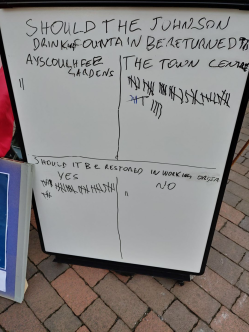 SHOULD THE JOHNSON
DRINK FOUNTAIN BE RETURNED TO
AYSCOUGHFEE THE TOWN CENTRE
GARDENS
SHOULD IT BE RESTORED IN WORKING ORDER
YES NO